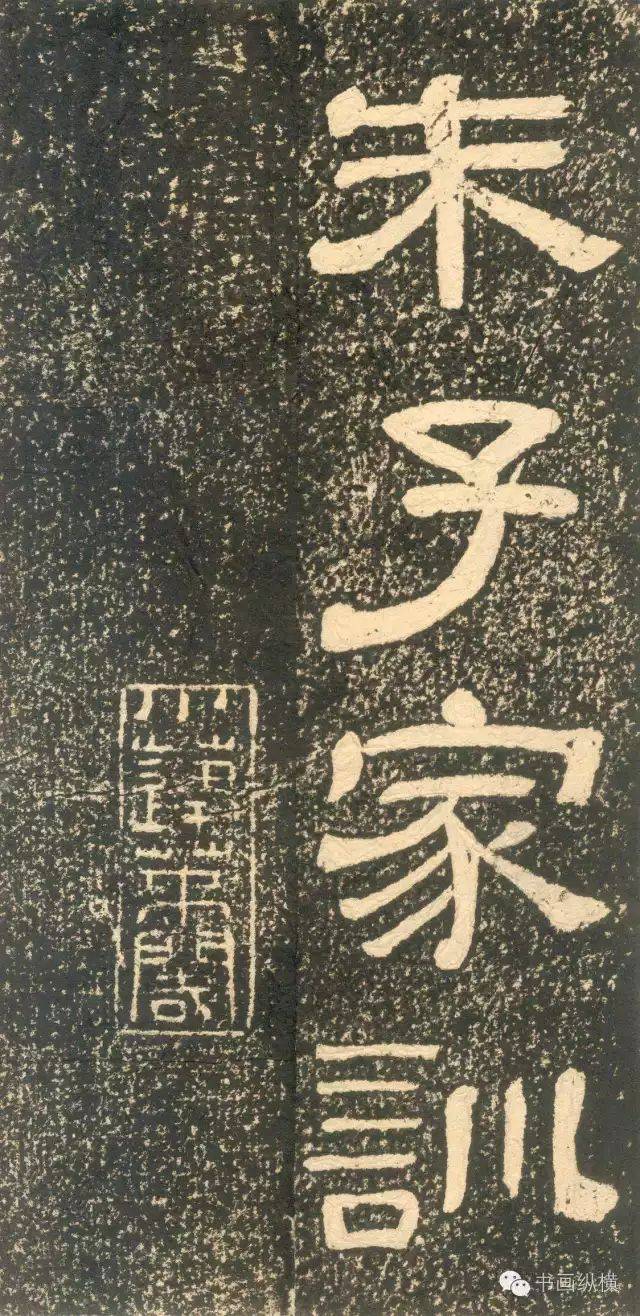 朱子家訓
书画纵横